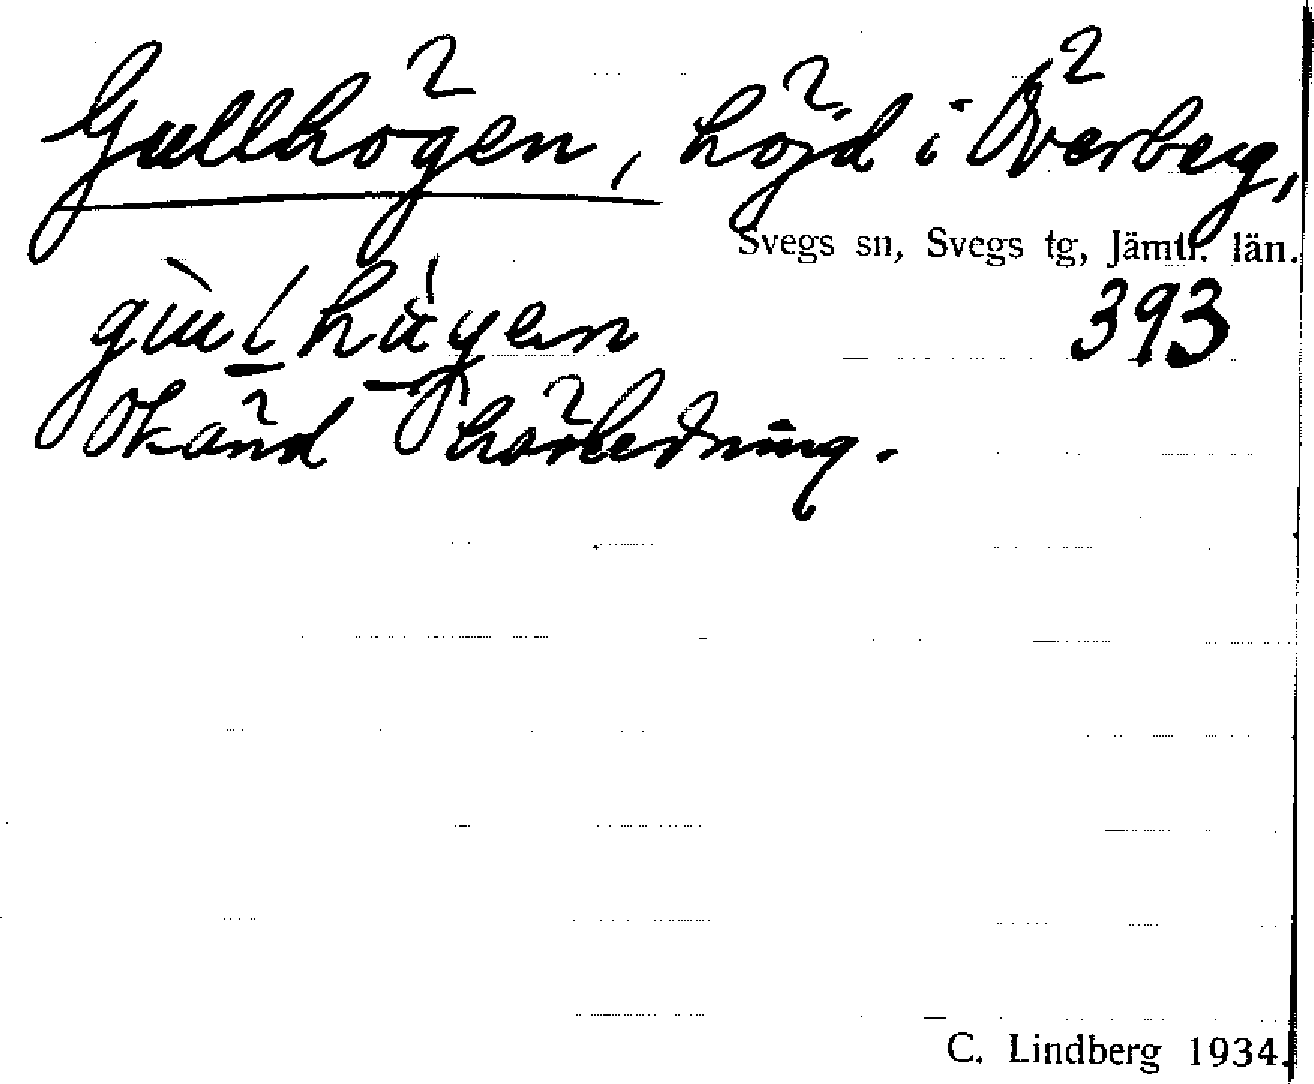 Gullhögen, höjd i Överberg,
Svegs sn, Svegs tg, Jämtl. län.
393
Okänd härledning.
C. Lindberg 1934.